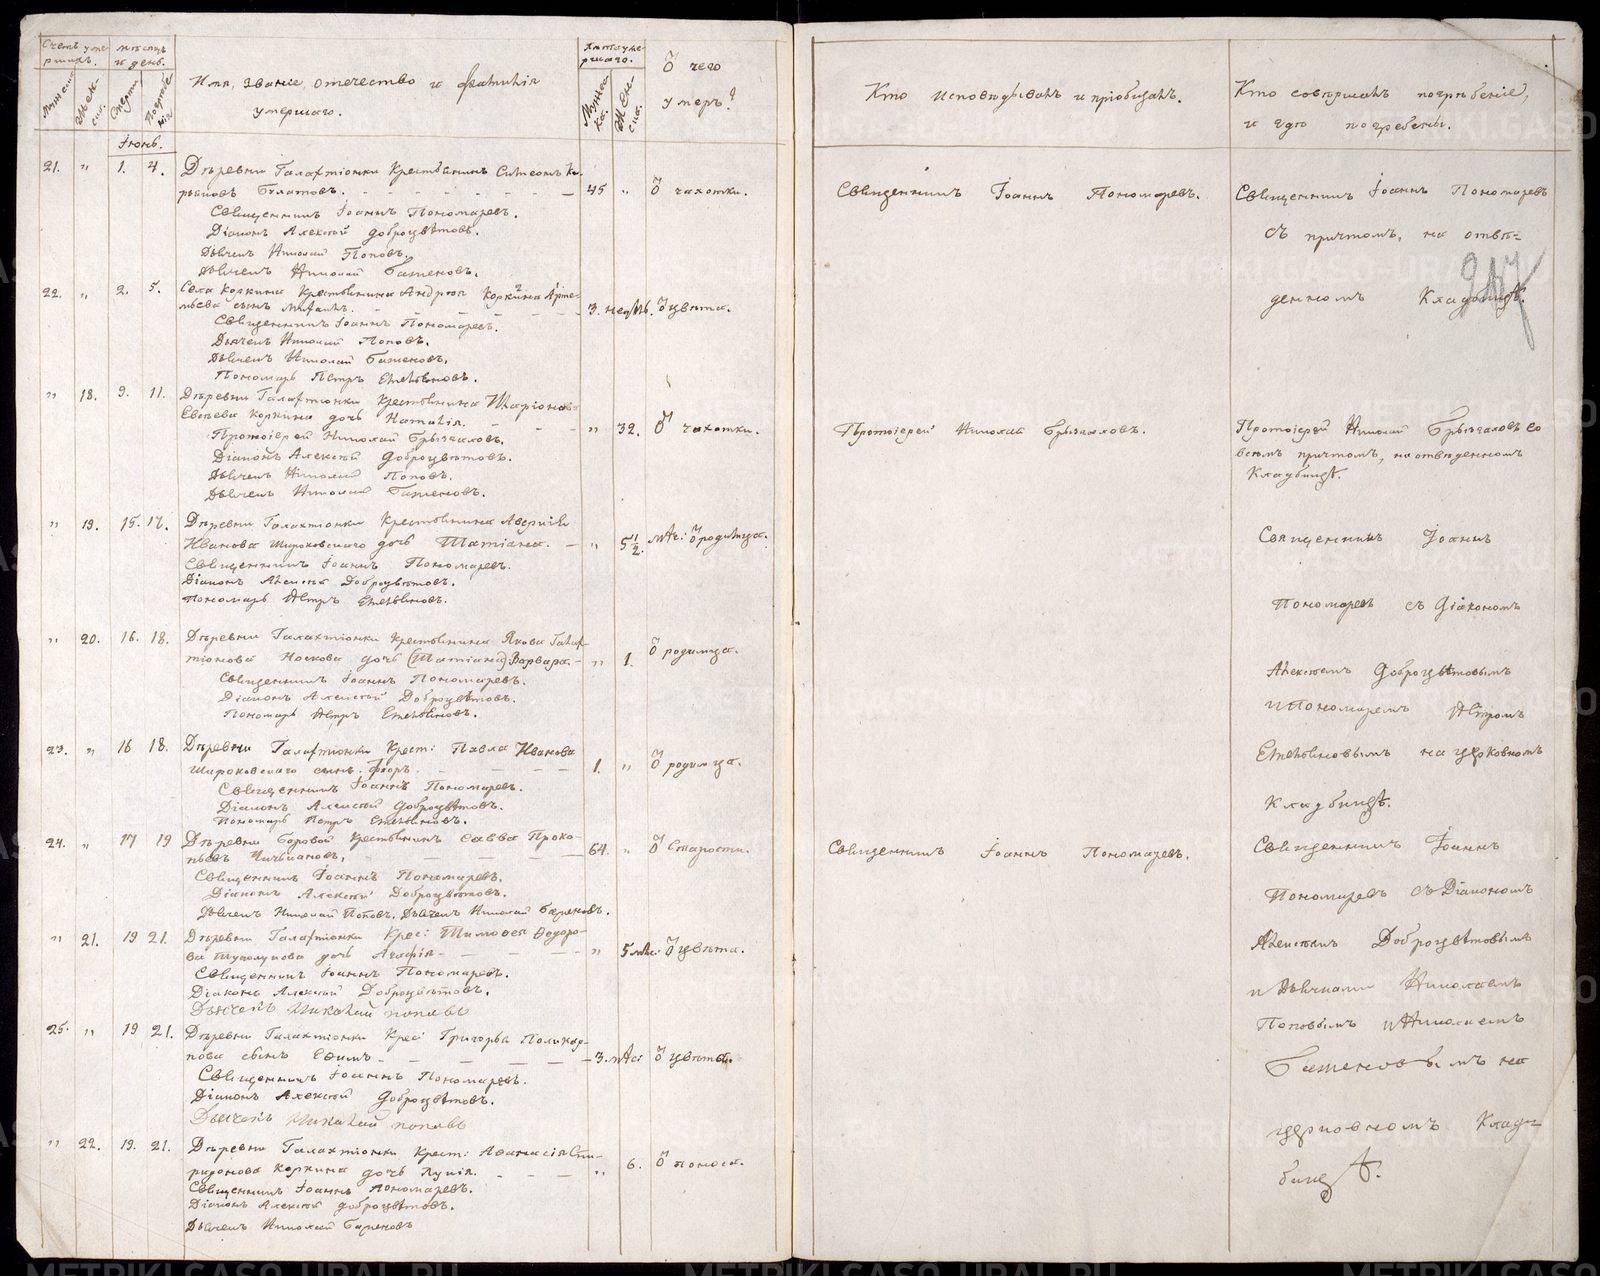 Счетъ уме-
ршихъ.
Мѣсяцъ
и день.
Мужеска.
Женс-
каго.
Смерти
Погребе-
нія
Имя, званіе, отечество и фамилія
умершаго.
Лѣта уме-
ршаго.
Мужес-
ка.
Женс-
каго.
Отъ чего
умеръ?
Кто исповѣдывалъ и пріобщалъ.
Кто совѣршалъ погрѣбеніе,
и гдѣ погребены.
Іюнь.
21. " 1. 4. Дѣревни Галактіонки Крестьянинъ Симеонъ
Булатовъ. 45 " Отъ чахотки.
Священникъ Іоаннъ Пономаревъ.
Діаконъ Алексѣй Доброцвѣтовъ.
Дьячекъ Николай Поповъ.
Дьячекъ Николай Баженовъ.
Священникъ Іоаннъ Пономаревъ.
Священникъ Іоаннъ Пономаревъ
съ причтомъ, на отвѣ=
денномъ Кладбищѣ.
22. " 2. 5. Села Коркина Крестьянина Андрея Коркина Арте-
мьева сынъ 3. недѣль. Отъ цвѣта.
Священникъ Іоаннъ Пономаревъ.
Дьячекъ Николай Поповъ.
Дьячекъ Николай Баженовъ.
Пономарь Петръ
" 18. 9. 11. Дѣревни Галактіонки Крестьянина Иларіона
Коркина дочь Наталія. " 32. Отъ чахотки.
Протоіерей Николай Брызгаловъ.
Діаконъ Алексѣй Доброцвѣтовъ.
Дьячекъ Николай Поповъ.
Дьячекъ Николай Баженовъ.
Протоіерей Николай Брызгаловъ.
Протоіерей Николай Брызгаловъ со
всѣмъ причтомъ, на отвѣденномъ
Кладбищѣ.
" 19. 15. 17. Дѣревни Галактіонки Крестьянина Аверкія
Иванова Широковскаго дочь Татіана. " 5 1/2. мѣс: Отъ родимца.
Священникъ Іоаннъ Пономаревъ.
Діаконъ Алексѣй Доброцвѣтовъ.
Пономарь Петръ
" 20. 16. 18. Дѣревни Галактіонки Крестьянина Якова Галак-
тіонова Носкова дочь (Татіана) Варвара. " 1. Отъ родимца.
Священникъ Іоаннъ Пономаревъ.
Діаконъ Алексѣй Доброцвѣтовъ.
Пономарь Петръ
23. " 16 18. Дѣревни Галактіонки Крест: Павла Иванова
Широковскаго сынъ. Флоръ. 1. " Отъ родимца.
Священникъ Іоаннъ Пономаревъ.
Діаконъ Алексѣй Доброцвѣтовъ.
Пономарь Петръ
Священникъ Іоаннъ
Пономаревъ съ Діакономъ
Алексѣемъ Доброцвѣтовымъ
и Пономаремъ Петромъ
на церковномъ
Кладбищѣ.
24. " 17 19 Дѣревни Боровой Крестьянинъ Савва Проко-
пьевъ 64. " Отъ Старости.
Священникъ Іоаннъ Пономаревъ.
Діаконъ Алексѣй Доброцвѣтовъ.
Дьячекъ Николай Поповъ, Дьячекъ Николай Баженовъ.
Священникъ Іоаннъ Пономаревъ.
" 21. 19 21. Дѣревни Галактіонки Крес: Тимофея Ѳедоро-
ва дочь Агафія. " 5 мѣс: Отъ цвѣта.
Священникъ Іоаннъ Пономаревъ.
Діаконъ Алексѣй Доброцвѣтовъ.
Дьячекъ Николай Поповъ
25. " 19 21. Дѣревни Галактіонки Крес: Григорья Поликар-
пова сынъ Ефимъ. 3. мѣс: Отъ цвѣта.
Священникъ Іоаннъ Пономаревъ.
Діаконъ Алексѣй Доброцвѣтовъ.
Дьячекъ Николай Поповъ
" 22. 19. 21. Дѣревни Галактіонки Крест: Аѳанасія Спи-
ридонова Коркина дочь " 6. Отъ поноса.
Священникъ Іоаннъ Пономаревъ.
Діаконъ Алексѣй Доброцвѣтовъ.
Дьячекъ Николай Баженовъ
Священникъ Іоаннъ
Пономаревъ съ Діакономъ
Алексѣемъ Доброцвѣтовымъ
и Дьячками Николаемъ
Поповымъ и Николаемъ
Баженовымъ на
церковномъ Клад-
бищѣ.
METRIKI.GASO-URAL.RU